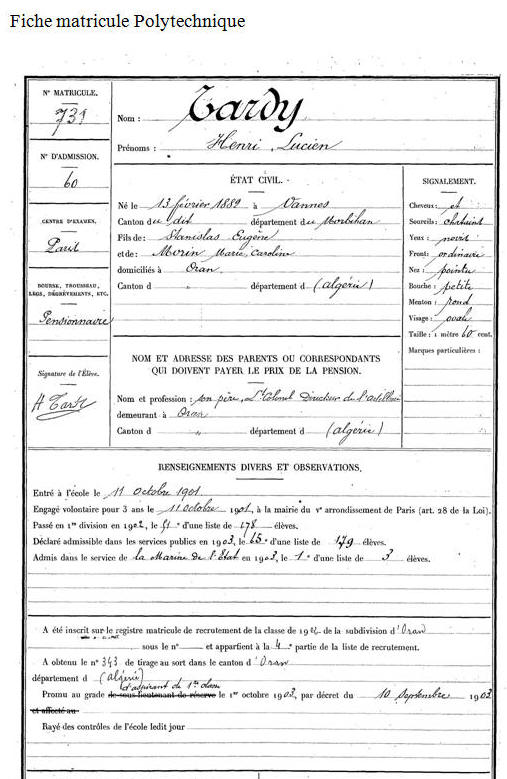 Fiche matricule Polytechnique
N° MATRICULE.
731
N° D'ADMISSION.
60
CENTRE D'EXAMEN.
Paris
BOURSE, TROUSSEAU,
LEGS, DÉGRÈVEMENTS, ETC.
Pensionnaire
Signature de l'Élève.
H Tardy
Nom : Tardy
Prénoms : Henri, Lucien
ÉTAT CIVIL.
Né le 13 février 1882 à Vannes
Canton du dit département du Morbihan
Fils de : Stanislas Eugène
et de : Morin Marie Caroline
domiciliés à Oran
Canton d " département d (algérie)
NOM ET ADRESSE DES PARENTS OU CORRESPONDANTS
QUI DOIVENT PAYER LE PRIX DE LA PENSION.
Nom et profession : son père, Lt Colonel Directeur de l'artillerie
demeurant à Oran
Canton d " département d (algérie)
SIGNALEMENT.
Cheveux : et
Sourcils : châtains
Yeux : noirs
Front : ordinaire
Nez : pointu
Bouche : petite
Menton : rond
Visage : ovale
Taille : 1 mètre 60 cent.
Marques particulières :
RENSEIGNEMENTS DIVERS ET OBSERVATIONS.
Entré à l'école le 11 Octobre 1901.
Engagé volontaire pour 3 ans le 11 octobre 1901, à la mairie du Ve arrondissement de Paris (art. 28 de la Loi).
Passé en 1re division en 1902, le 51e d'une liste de 178 élèves.
Déclaré admissible dans les services publics en 1903, le 65e d'une liste de 179 élèves.
Admis dans le service de la Marine de l'Etat en 1903, le 1e d'une liste de 3 élèves.
A été inscrit sur le registre matricule de recrutement de la classe de 1902 de la subdivision d'Oran
sous le n° et appartient à la 4e partie de la liste de recrutement.
A obtenu le n° 343 de tirage au sort dans le canton d'Oran
département d (algérie)
d'aspirant de 1re classe
Promu au grade de sous-lieutenant de réserve le 1er octobre 1903, par décret du 10 Septembre 1903
et affecté au
Rayé des contrôles de l'école ledit jour